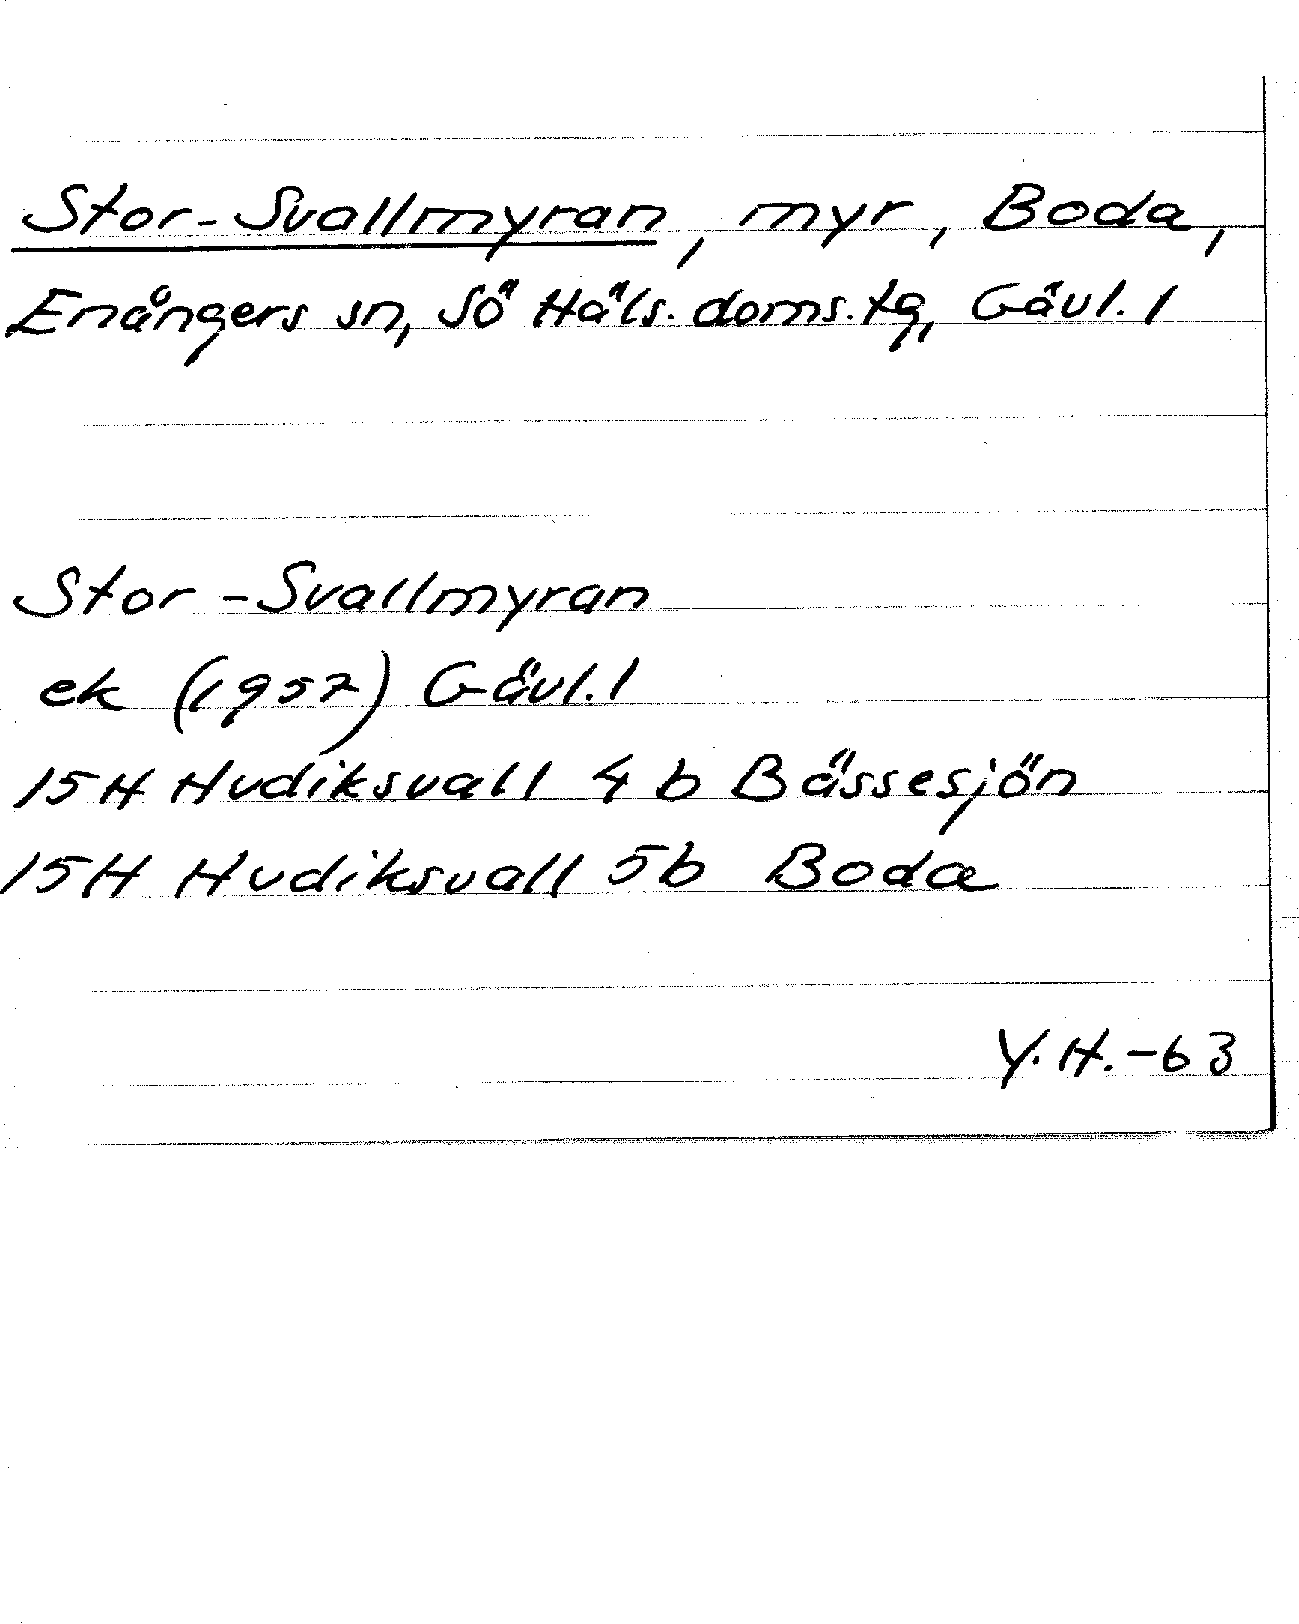 Stor-Svallmyran, myr, Boda,
Enångers sn, Sö Häls. doms. tg, Gävl. l
Stor-Svallmyran
ek (1957) Gävl. l
15H Hudiksvall 4 b Bässesjön
15H Hudiksvall 5b Boda
Y.H.-63